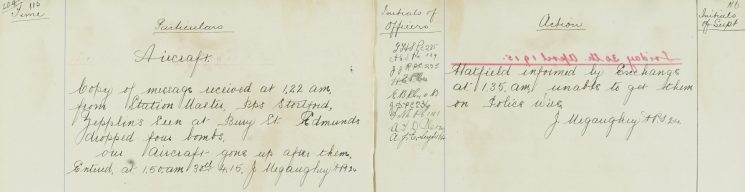 116
Time
Particulars
Initials of
Officers
Action
116
Initials
of Supt
Aircraft.
Copy of message received at 1.22 am,
from Station Master, Bps Stortford,
Zepplins seen at Bury St. Edmunds
dropped four bombs.
our aircraft gone up after them.
Entered, at 1.50. am 30th 4.15. J Megaughey
Friday 30th April 1915.
Hatfield informed by Exchange
at 1.35. am, unable to get them
on Police wire
J Megaughey